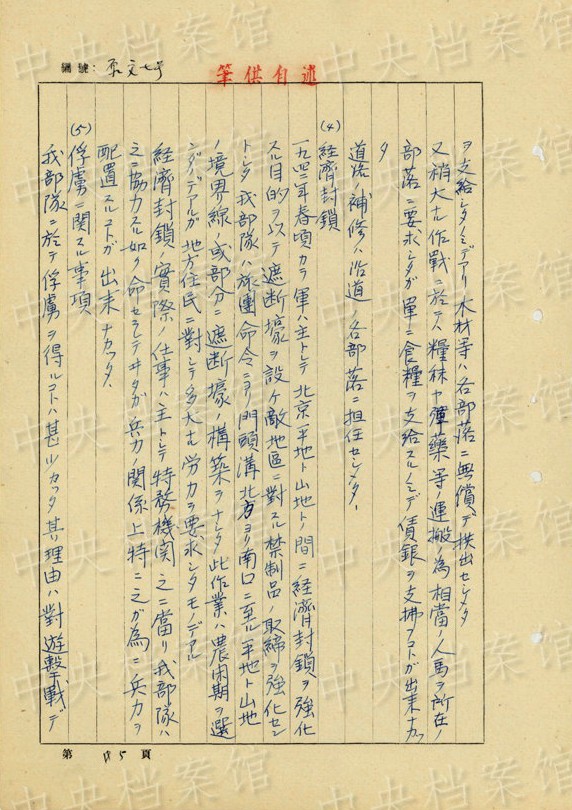 編號：
筆供自述
ヲ支給シタノミデアリ木材等ハ各部落ニ無償デ拱出セシメタ
又稍大ナル作戰ニ於テハ糧秣ヤ彈藥等ノ運搬ノ為相當ノ人馬ヲ所在ノ
部落ニ要求シタガ單ニ食糧ヲ支給スルノミデ賃銀ヲ支拂フコトガ出来ナカッ
タ
道路ノ補修ハ沿道ノ各部落ニ担任セシメタ、
(4)
經濟封鎖
一九四二年春頃カラ軍ハ主トシテ北京平地ト山地トノ間ニ経済封鎖ヲ強化
スル目的ヲ以テ遮断壕ヲ設ケ敵地區ニ對スル禁制品ノ取締ヲ強化セン
トシタ我部隊ハ旅團命令ニヨリ門頭溝北方ヨリ南口ニ至ル平地ト山地
ノ境界線ノ或部分ニ遮断壕ノ構築ヲナシタ此作業ハ農閑期ヲ選
ンダノデアルガ地方住民ニ對シテ多大ナル労力ヲ要求シタモノデアル
経済封鎖ノ實際ノ仕事ハ主トシテ特務機関ガ之ニ當リ我部隊ハ
之ニ協力スル如ク命セラレテヰタガ兵力ノ関係上特ニ之ガ為ニ兵力ヲ
配置スルコトガ出来ナカッタ、
(5)
俘虜ニ関スル事項
我部隊ニ於テ俘虜ヲ得ルコトハ甚ダ少カッタ其ノ理由ハ對遊撃戰デ
第 頁
中央档案馆